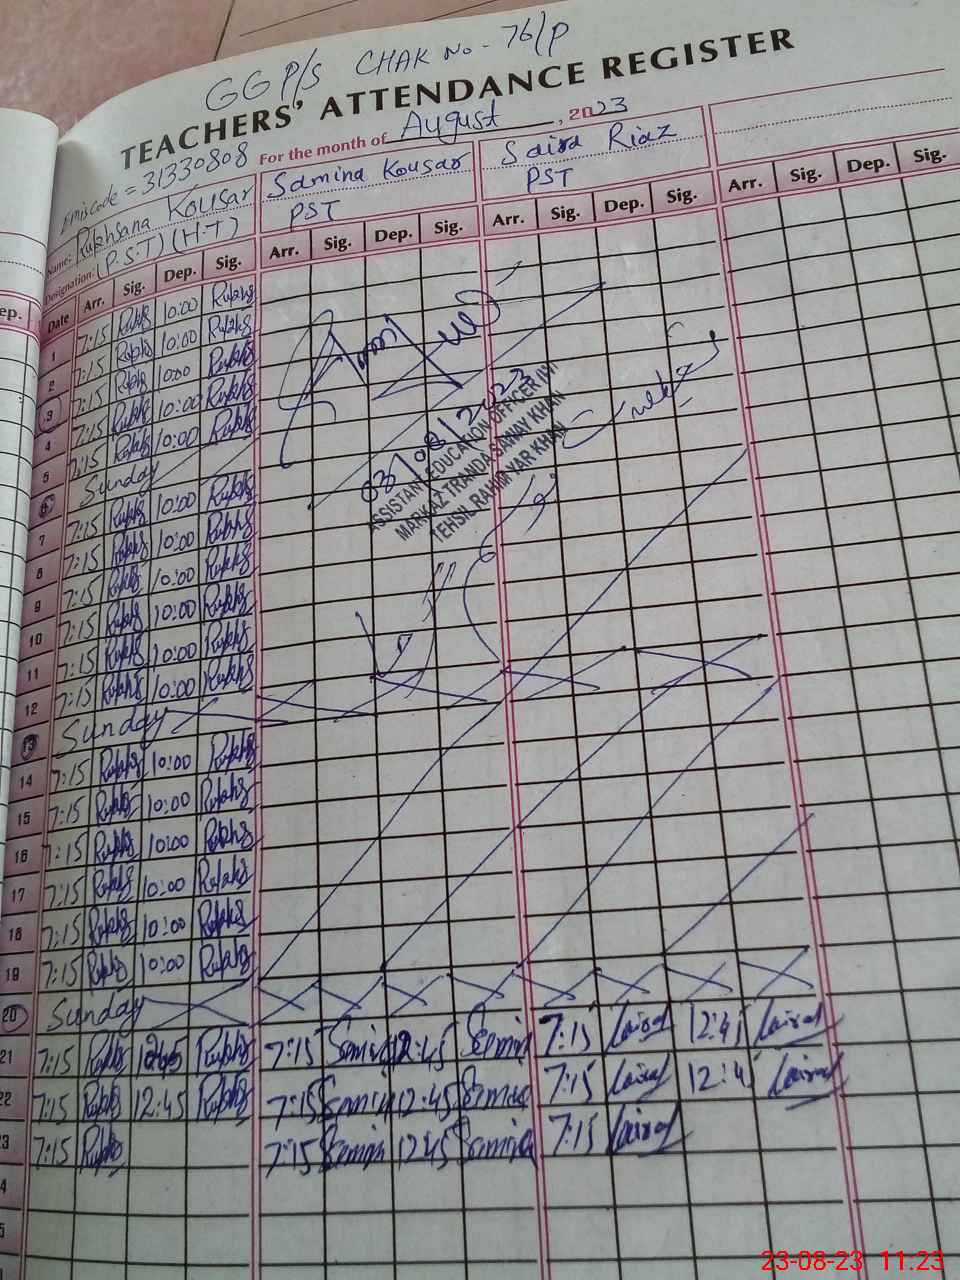 GGP/S CHAK No - 76/P
TEACHERS' ATTENDANCE REGISTER
For the month of August, 2023
Emiscode = 31330808
Name: Rukhsana Kousar Samina Kousar Saira Riaz
Designation: (P.S.T) (H.T) PST PST
Date Arr. Sig. Dep. Sig. Arr. Sig. Dep. Sig. Arr. Sig. Dep. Sig. Arr. Sig.
1 7:15 Rukhs 10:00 Rukhs
2 7:15 Rukhs 10:00 Rukhs
3 7:15 Rukhs 10:00 Rukhs
4 7:15 Rukhs 10:00 Rukhs
5 7:15 Rukhs 10:00 Rukhs
6 Sunday
7 7:15 Rukhs 10:00 Rukhs
8 7:15 Rukhs 10:00 Rukhs
9 7:15 Rukhs 10:00 Rukhs
10 7:15 Rukhs 10:00 Rukhs
11 7:15 Rukhs 10:00 Rukhs
12 7:15 Rukhs 10:00 Rukhs
13 Sunday
14 7:15 Rukhs 10:00 Rukhs
15 7:15 Rukhs 10:00 Rukhs
16 7:15 Rukhs 10:00 Rukhs
17 7:15 Rukhs 10:00 Rukhs
18 7:15 Rukhs 10:00 Rukhs
19 7:15 Rukhs 10:00 Rukhs
20 Sunday
21 7:15 Rukhs 12:45 Rukhs 7:15 Samina 12:45 Samina 7:15 Saira 12:45 Saira
22 7:15 Rukhs 12:45 Rukhs 7:15 Samina 12:45 Samina 7:15 Saira 12:45 Saira
3 7:15 Rukhs 7:15 Samina 12:45 Samina 7:15 Saira
4
5
ep.
03/08/2023
ASSISTANT EDUCATION OFFICER (W)
MARKAZ TRANDA SAWAY KHAN
TEHSIL RAHIM YAR KHAN
23-08-23 11:23